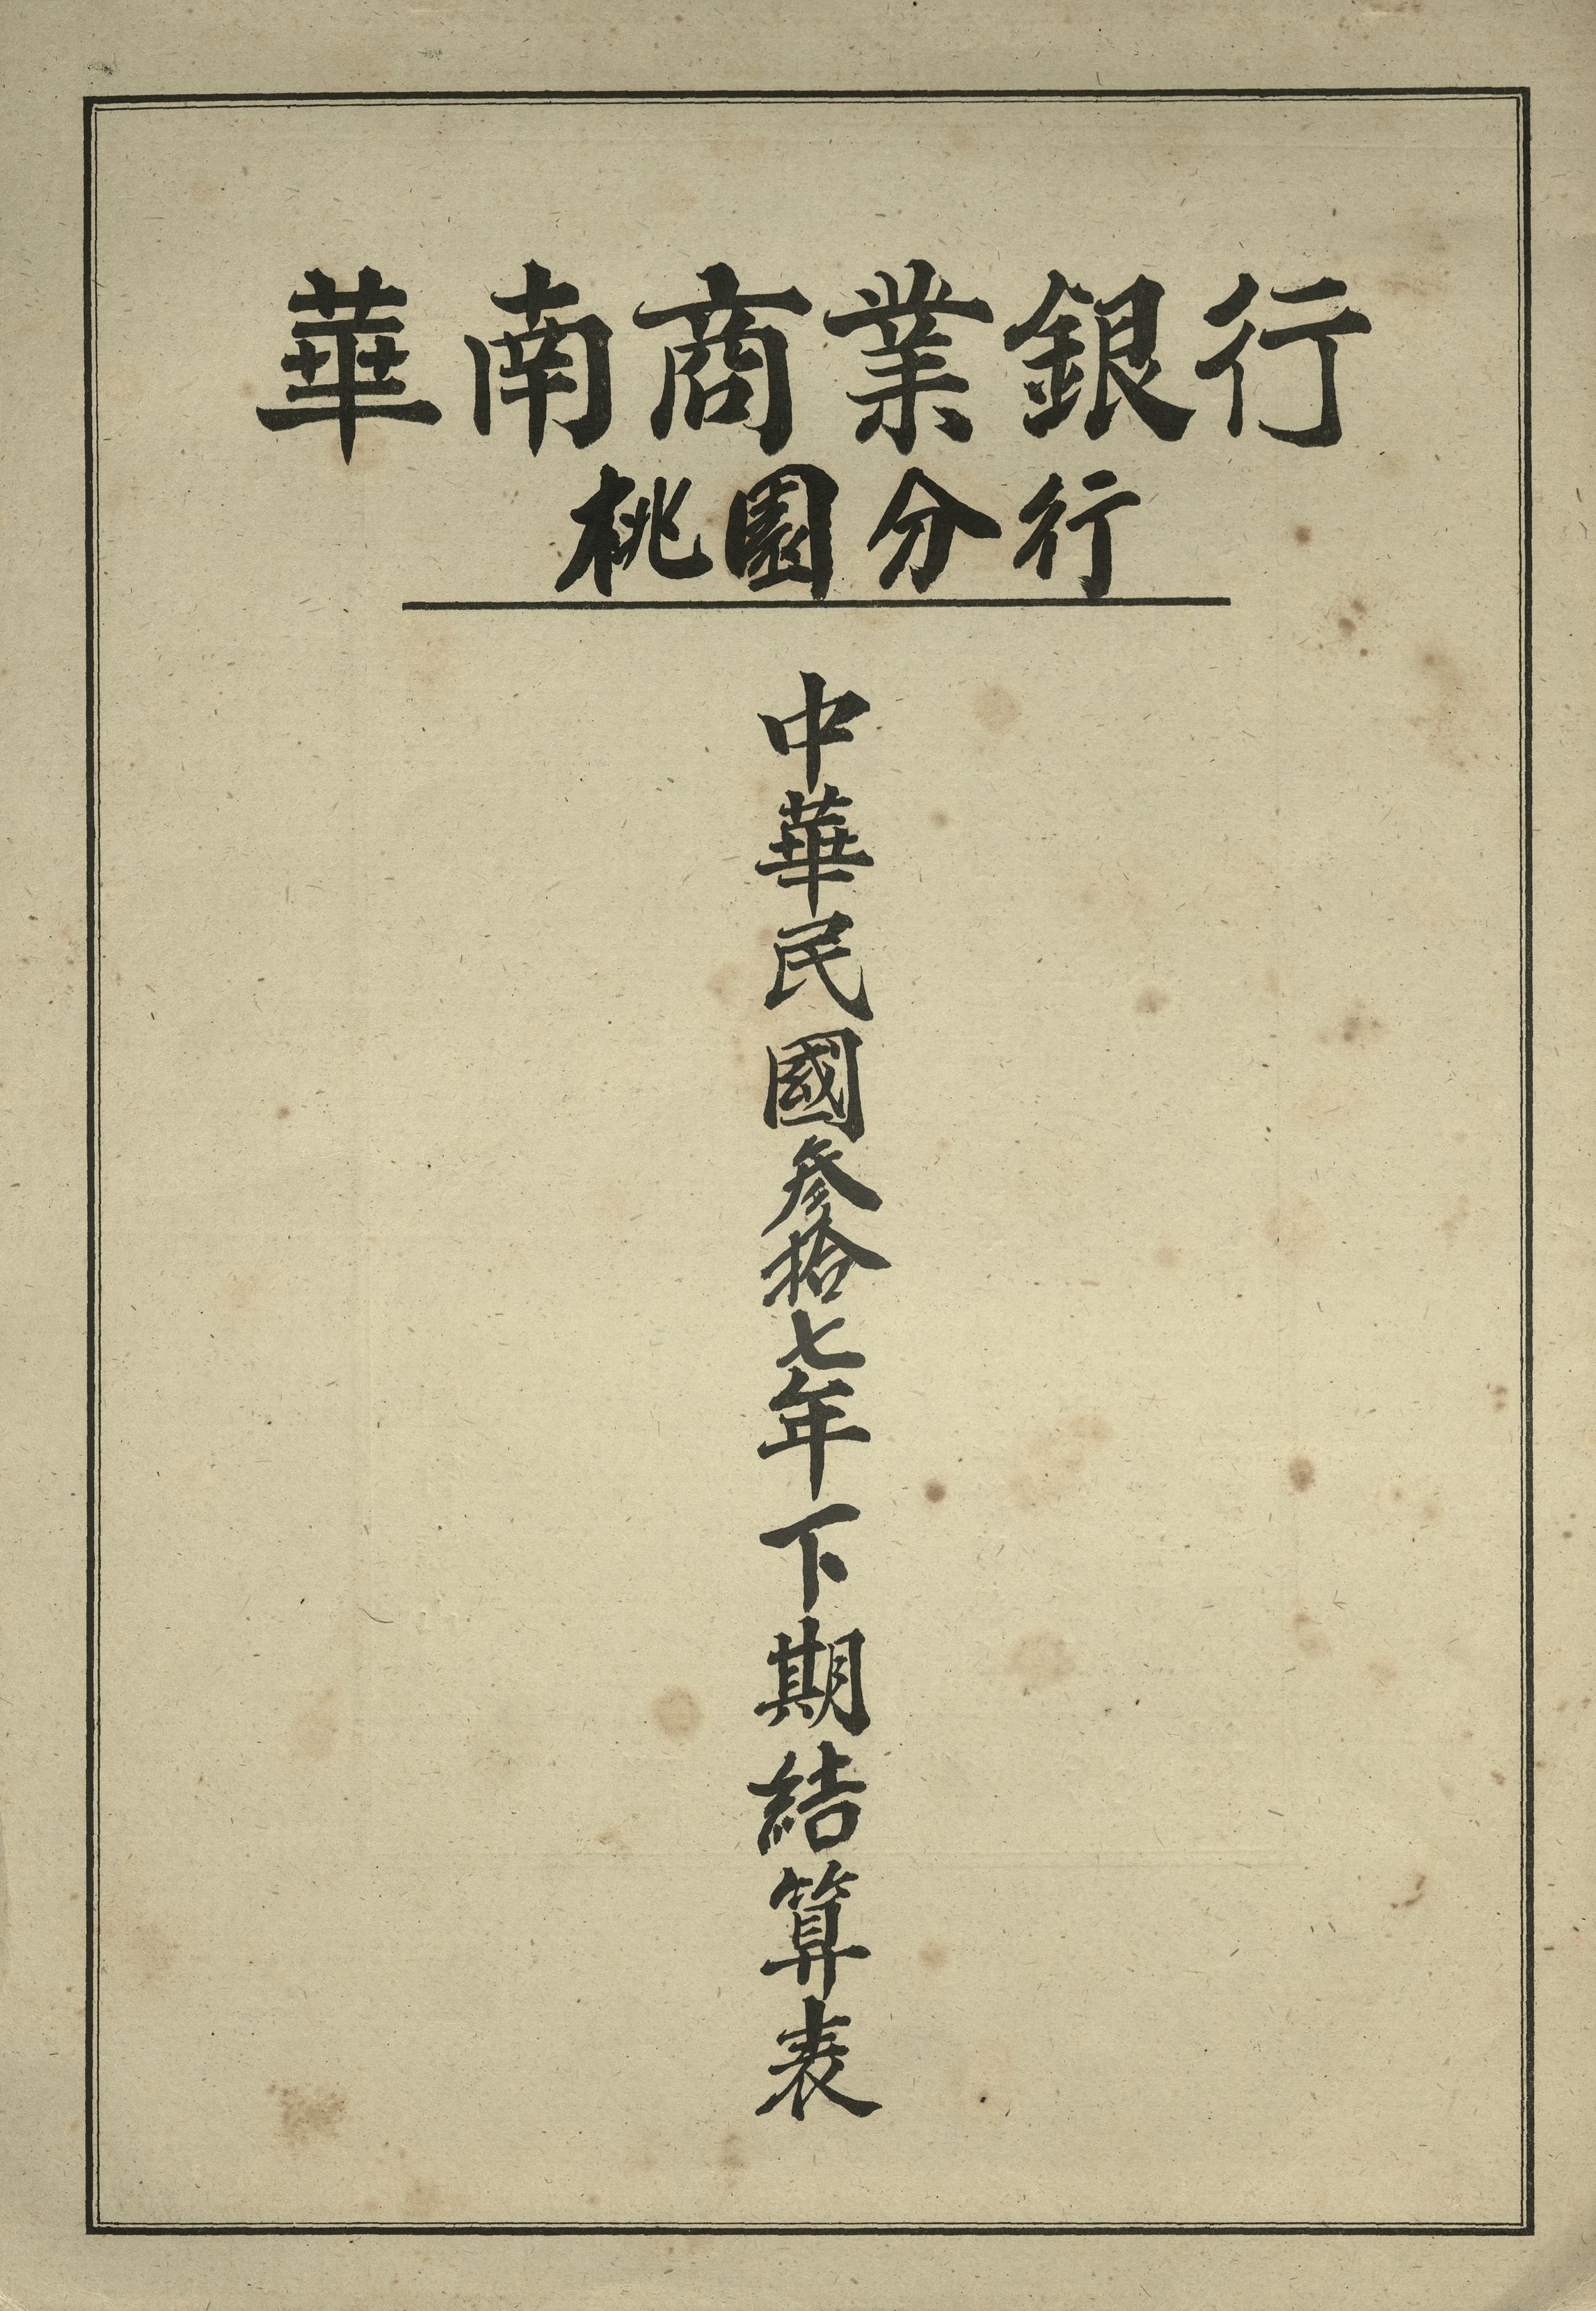 華南商業銀行
桃園分行
中華民國參拾七年下期結算表